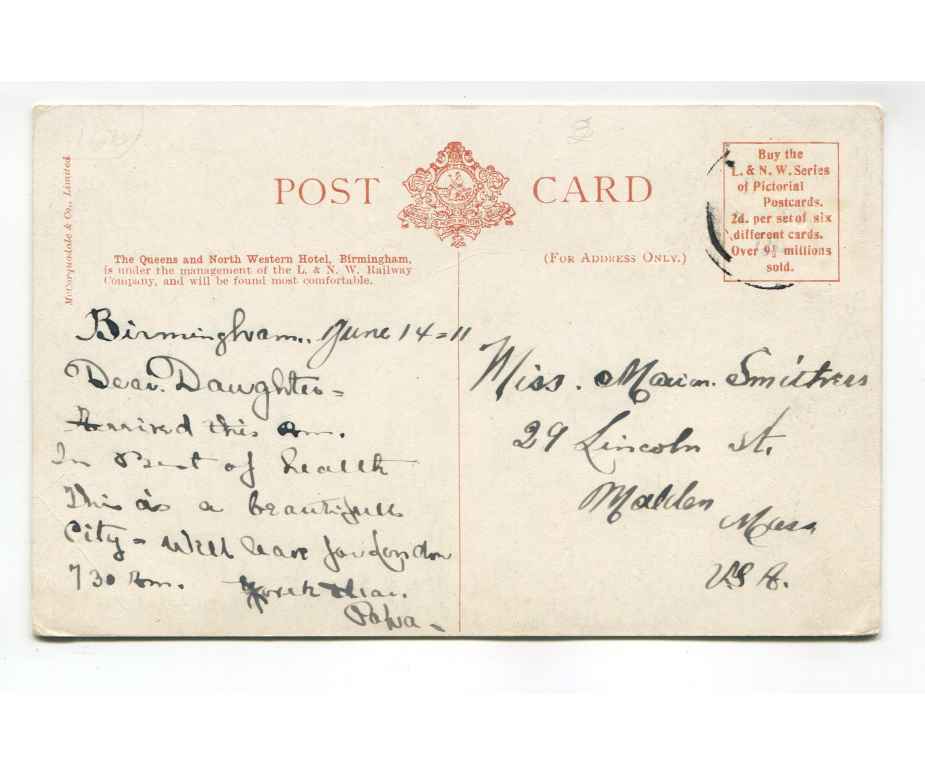 McCorquodale & Co., Limited.
POST CARD
Buy the
L. & N. W. Series
of Pictorial
Postcards.
2d. per set of six
different cards.
Over 9½ millions
sold.
The Queens and North Western Hotel, Birmingham,
is under the management of the L. & N. W. Railway
Company, and will be found most comfortable.
(FOR ADDRESS ONLY.)
Birmingham. June 14 = 11
Dear. Daughter =
Arrived this am.
In Best of health
This is a beautifull
City = Will leave for London
730 am.
Papa -
Miss. Marion. Smithers
29 Lincoln St.
Malden
Mass
USA.